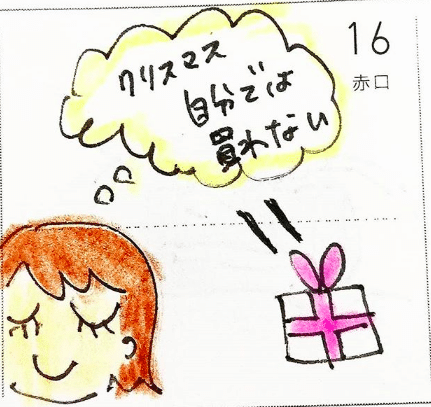 16
赤口
クリスマス
自分では
買わない